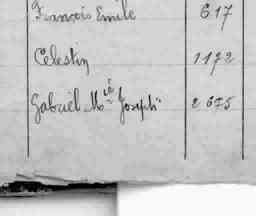 François Emile 617
Celestin 1172
Gabriel Mie Joseph 2675